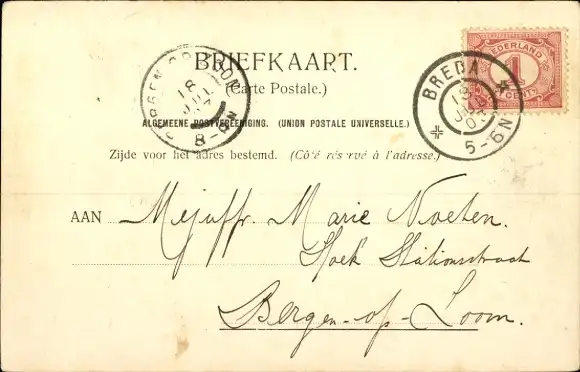 BRIEFKAART.
(Carte Postale.)
ALGEMEENE POSTVEREENIGING. (UNION POSTALE UNIVERSELLE.)
Zijde voor het adres bestemd. (Côté réservé à l'adresse.)
BERGEN OP ZOOM
18
JUL
8-9N
BREDA
5-6N
NEDERLAND
1
CENT
AAN Mejuffr. Marie Nooten.
Hoek Stationsstraat
Bergen-op-Zoom.